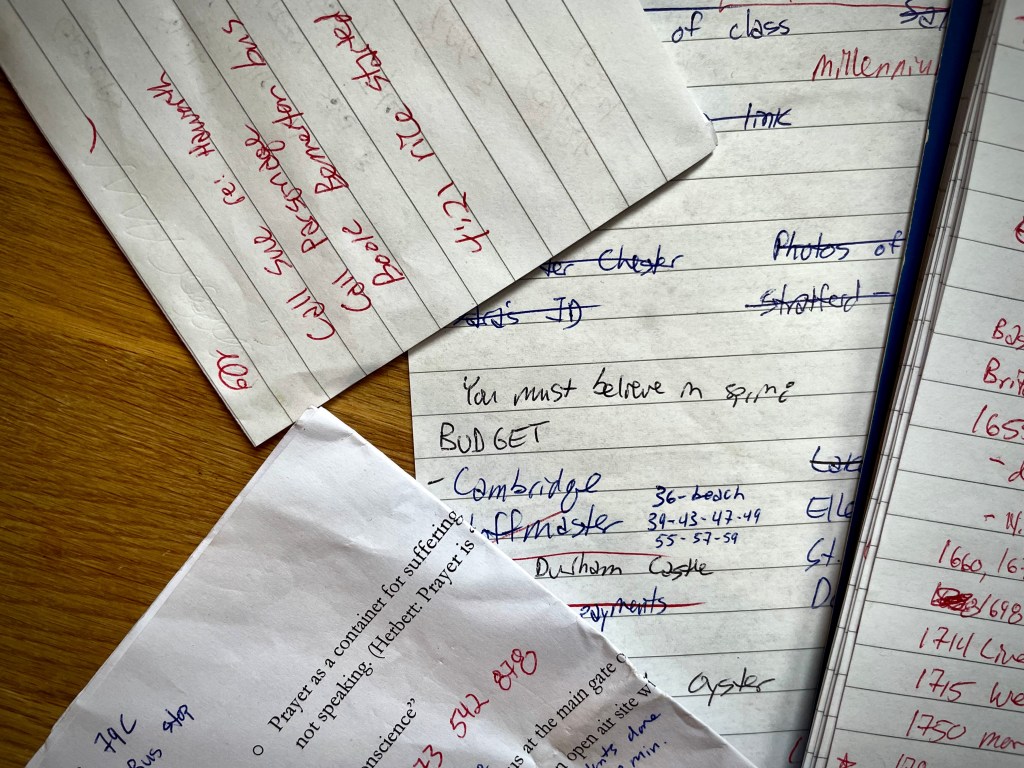 Call Sue re: Haworth
Call Parsonage
Book Bemerton bus
4:21 rice started
of class
Millenniu
link
er Chester
Photos of
's ID
Stratford -
You must believe in spring
BUDGET
- Cambridge
36-beach
offmaster
39-43-47-49
55-57-59
Elle
Durham Castle
St.
ayments
D
oyster
Prayer as a container for suffering
not speaking. (Herbert: Prayer is
onscience”
542 878
us at the main gate
open air site wi
nts done
min.
79C
Bus stop
Bri
165
1660, 16
1698
1714 Live
1715 we
1750 mor